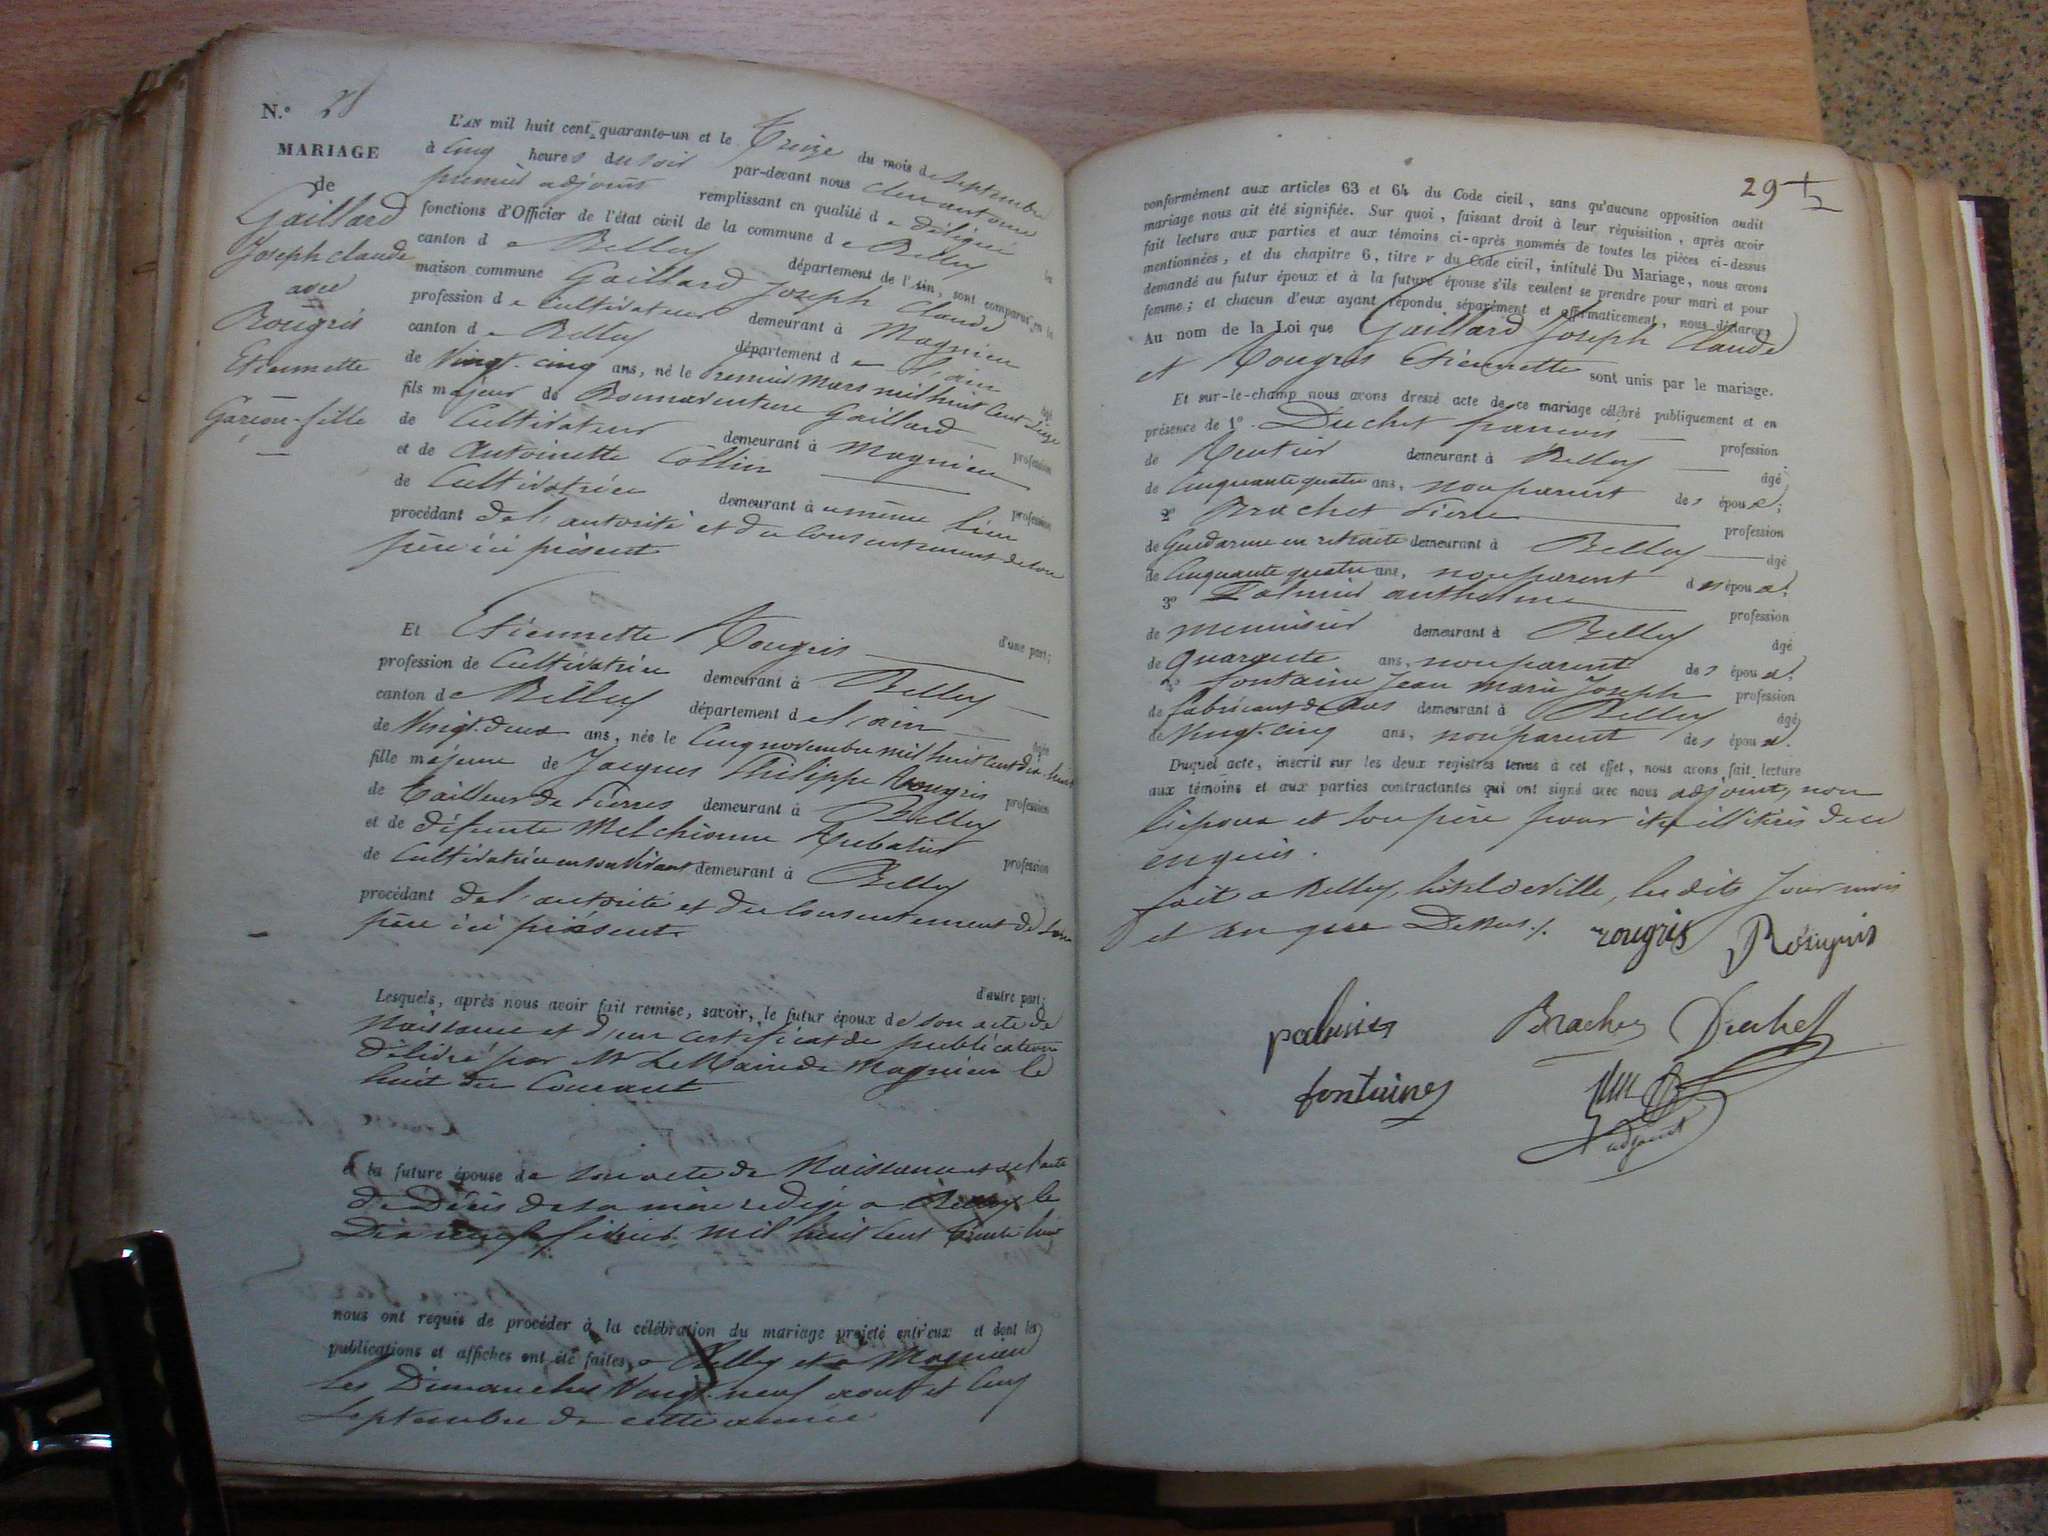 N.° 28
MARIAGE
de
Gaillard
Joseph Claude
avec
Rougris
Etiennette
Garçon-fille
L'AN mil huit cent quarante-un et le Treize du mois de Septembre
à Cinq heures du soir par-devant nous antoine
premier adjoint remplissant en qualité de délégué les
fonctions d'Officier de l'état civil de la commune de Belley
canton de Belley département de l'Ain, sont comparus en la
maison commune Gaillard Joseph Claude
profession de Cultivateur demeurant à Magnieu
canton de Belley département de l'ain âgé
de Vingt-cinq ans, né le premier mars mil huit cent seize
fils majeur de Bonnaventure Gaillard profession
de Cultivateur demeurant à Magnieu
et de Antoinette Collin profession
de Cultivatrice demeurant à même lieu
procédant de l'autorité et du Consentement de son
père ici présent
d'une part;
Et Etiennette Rougris
profession de Cultivatrice demeurant à Belley
canton de Belley département de l'ain âgée
de Vingt-deux ans, née le Cinq novembre mil huit cent dix-huit
fille majeure de Jacques Philippe Rougris profession
de Tailleur de Pierres demeurant à Belley
et de défunte Melchionne Rubatier profession
de Cultivatrice en son vivant demeurant à Belley
procédant de l'autorité et du Consentement de son
père ici présent.
d'autre part;
Lesquels, après nous avoir fait remise, savoir, le futur époux de son acte de
Naissance et d'un certificat de publication
délivré par Mr Le Maire de Magnieu le
huit du Courant
et la future épouse de son acte de Naissance et de l'acte
de Décès de sa mère redigé a Belley le
Dix neuf mil huit cent trente huit
nous ont requis de procéder à la célébration du mariage projeté entr'eux et dont les
publications et affiches ont été faites a Belley et a Magnieu
les Dimanches Vingt-neuf aout et Cinq
Septembre de cette année.
29
conformément aux articles 63 et 64 du Code civil, sans qu'aucune opposition audit
mariage nous ait été signifiée. Sur quoi, faisant droit à leur réquisition, après avoir
fait lecture aux parties et aux témoins ci-après nommés de toutes les pièces ci-dessus
mentionnées, et du chapitre 6, titre v du Code civil, intitulé Du Mariage, nous avons
demandé au futur époux et à la future épouse s'ils veulent se prendre pour mari et pour
femme; et chacun d'eux ayant répondu séparément et affirmativement, nous déclarons
Au nom de la Loi que Gaillard Joseph Claude
et Rougris Etiennette sont unis par le mariage.
Et sur-le-champ nous avons dressé acte de ce mariage célébré publiquement et en
présence de 1° Duchet francois profession
de Rentier demeurant à Belley âgé
de Cinquante quatre ans, non parent des époux;
2° Brachet Pierre profession
de Gendarme en retraite demeurant à Belley âgé
de Cinquante quatre ans, non parent des époux;
3° Palmier anthelme profession
de menuisier demeurant à Belley âgé
de quarante ans, non parent des époux;
4° fontaine Jean Marie Joseph profession
de fabricant de demeurant à Belley âgé
de Vingt-cinq ans, non parent des époux.
Duquel acte, inscrit sur les deux registres tenus à cet effet, nous avons fait lecture
aux témoins et aux parties contractantes qui ont signé avec nous adjoint, non
l'époux et son père pour être illitérés de ce
enquis.
fait a Belley, hôtel de Ville, les dits Jour mois
et an que Dessus.
rougris Rougris
palmier Brachet Duchet
fontaine
adjoint